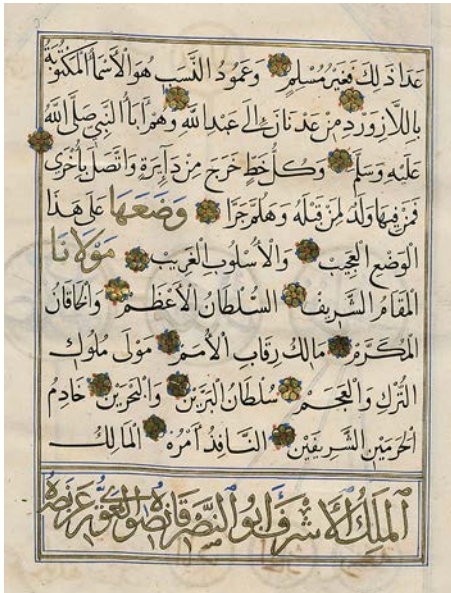 عدا ذلك فغير مسلم وعمود النسب هو الأسما المكتوبة
باللازورد من عدنان إلى عبد الله وهم اباا النبي صلى الله
عليه وسلم وكل خط خرج من دايرة واتصل بأخرى
فمن فيها ولد لمن قبله وهلم جرا وضعها على هذا
الوضع العجيب والأسلوب الغريب مولانا
المقام الشريف السلطان الأعظم والخاقان
المكرم مالك رقاب الأمم مولى ملوك
الترك والعجم سلطان البرين والبحرين خادم
الحرمين الشريفين النافذ أمره المالك
الملك الأشرف ابو النصر قانصوه الغوري عز نصره